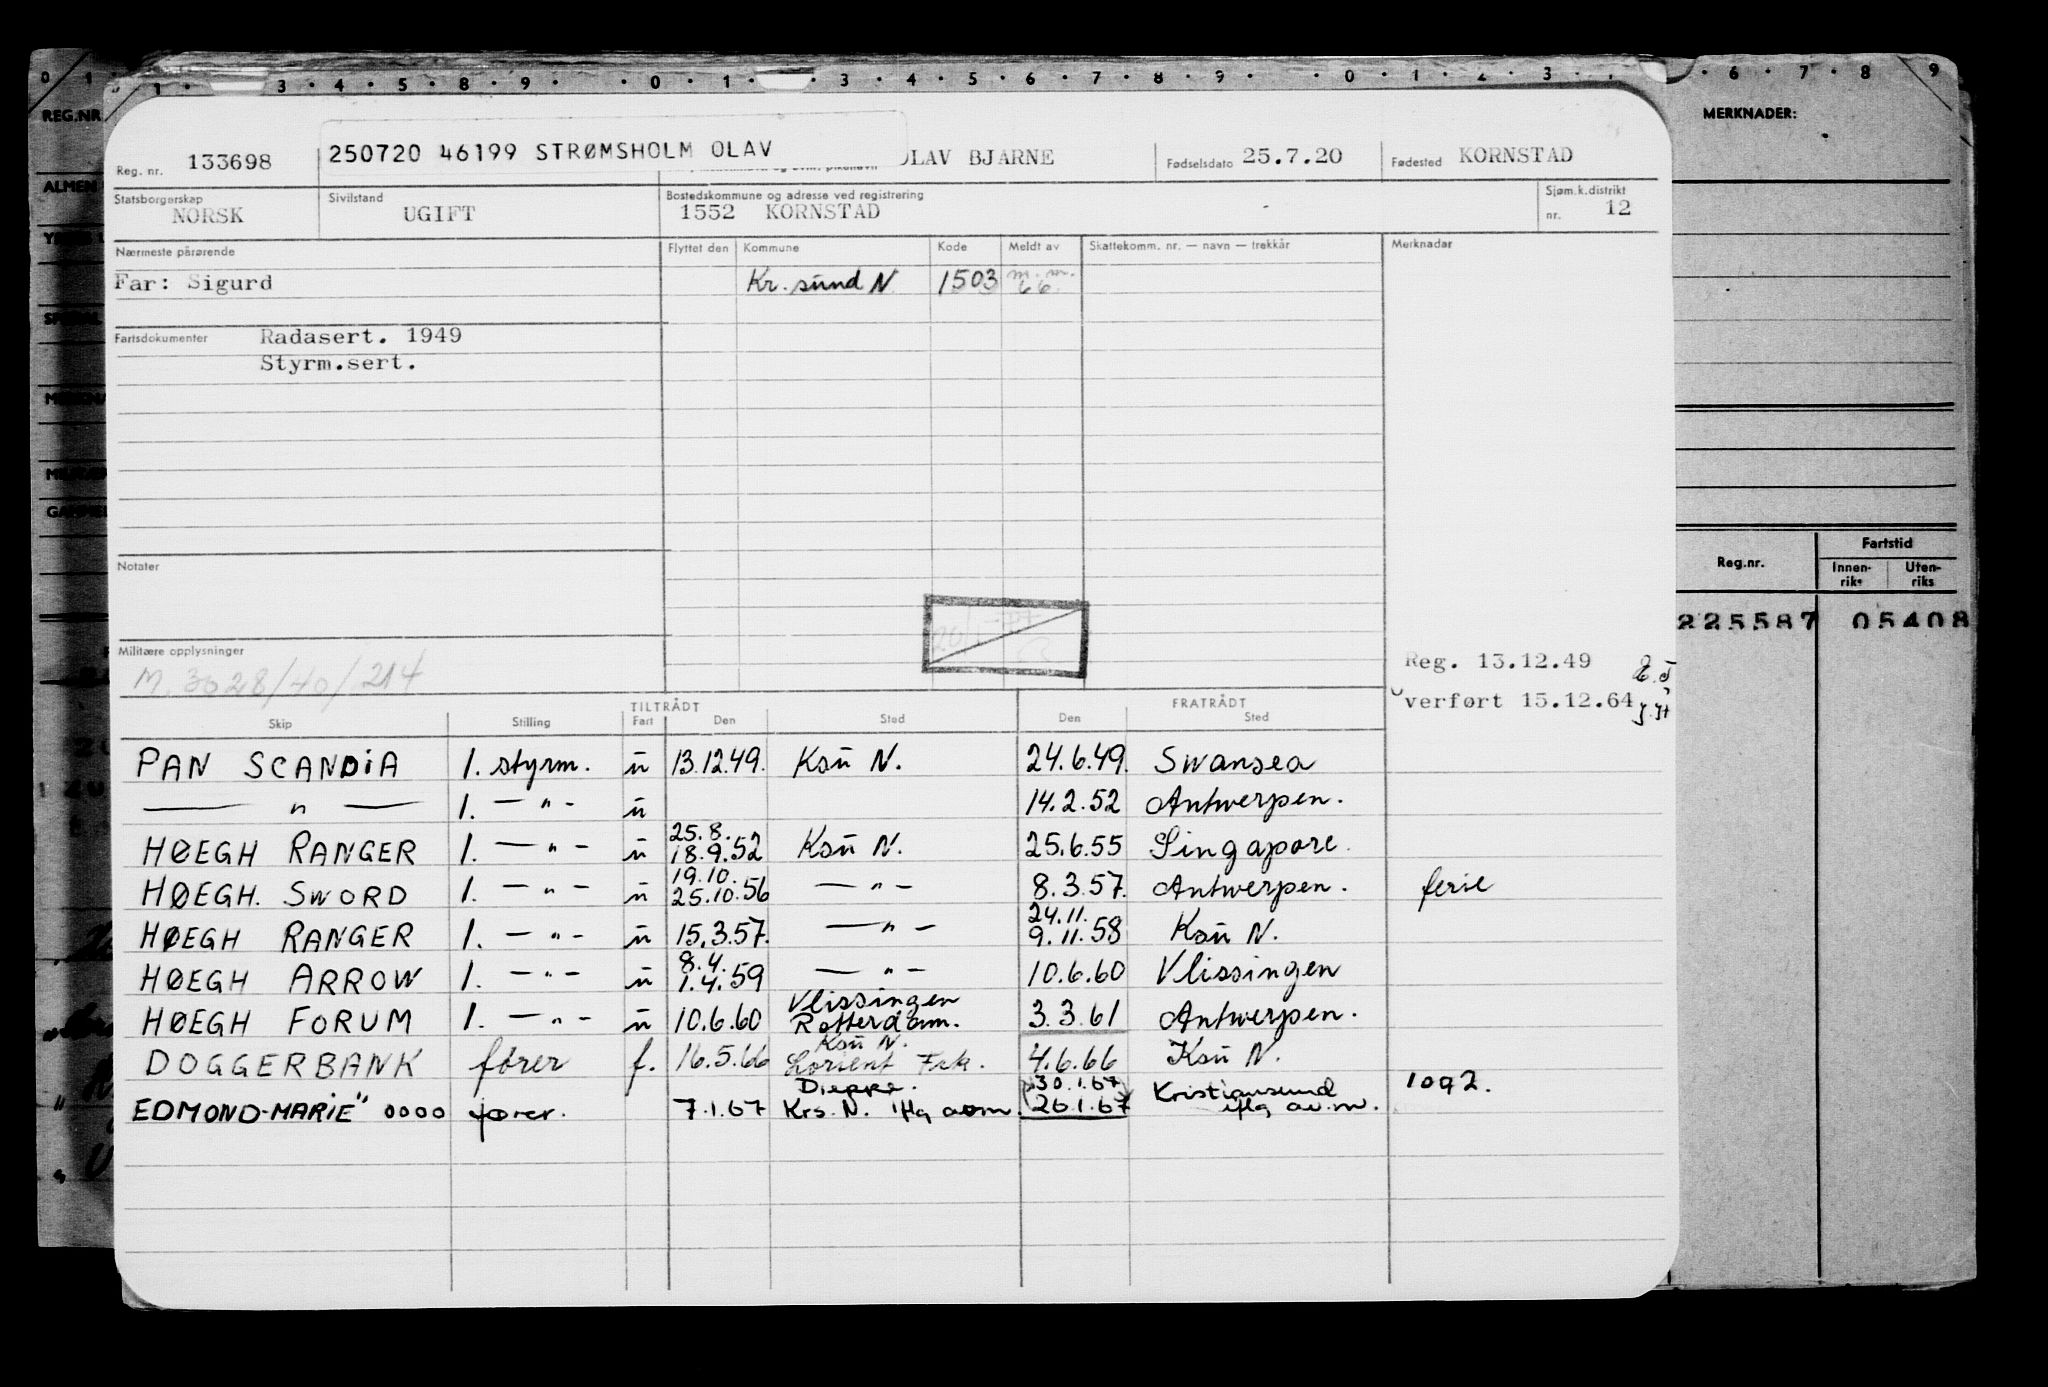 MERKNADER:
REG.NR
Reg. nr. 133698
250720 46199 STRØMSHOLM OLAV
OLAV BJARNE
Fødselsdato 25.7.20
Fødested KORNSTAD
Statsborgerskap NORSK
Sivilstand UGIFT
Bostedskommune og adresse ved registrering
1552 KORNSTAD
Sjøm.k.distrikt
nr. 12
Nærmeste pårørende
Flyttet den Kommune Kode Meldt av Skattekomm. nr. — navn — trekkår Merknader
Far: Sigurd
Kr.sund N 1503 m.m. 66
Fartsdokumenter Radasert. 1949
Styrm.sert.
Notater
Militære opplysninger
M. 3028/40/214
Reg. 13.12.49
verført 15.12.64
Reg.nr. Fartstid
Innen-riks Uten-riks
225587 05408
TILTRÅDT FRATRÅDT
Skip Stilling Fart Den Sted Den Sted
PAN SCANDIA 1. styrm. u 13.12.49. Ksu N. 24.6.49. Swansea
— " — 1. — " — u 14.2.52 Antwerpen.
HØEGH RANGER 1. — " — u 25.8. 18.9.52 Ksu N. 25.6.55 Singapore.
HØEGH. SWORD 1. — " — u 19.10. 25.10.56 — " — 8.3.57. Antwerpen. ferie
HØEGH RANGER 1. — " — u 15.3.57. — " — 24.11. 9.11.58 Ksu N.
HØEGH ARROW 1. — " — u 8.4. 1.4.59 — " — 10.6.60 Vlissingen
HØEGH FORUM 1. — " — u 10.6.60 Vlissingen Rotterdam. 3.3.61 Antwerpen.
DOGGERBANK fører f. 16.5.66 Ksu N. Lorient Frk. 4.6.66 Ksu N.
EDMOND-MARIE" 0000 fører. 7.1.67 Dieppe. Krs. N. (30.1.67) 26.1.67 Kristiansund iflg av.m. 1092.